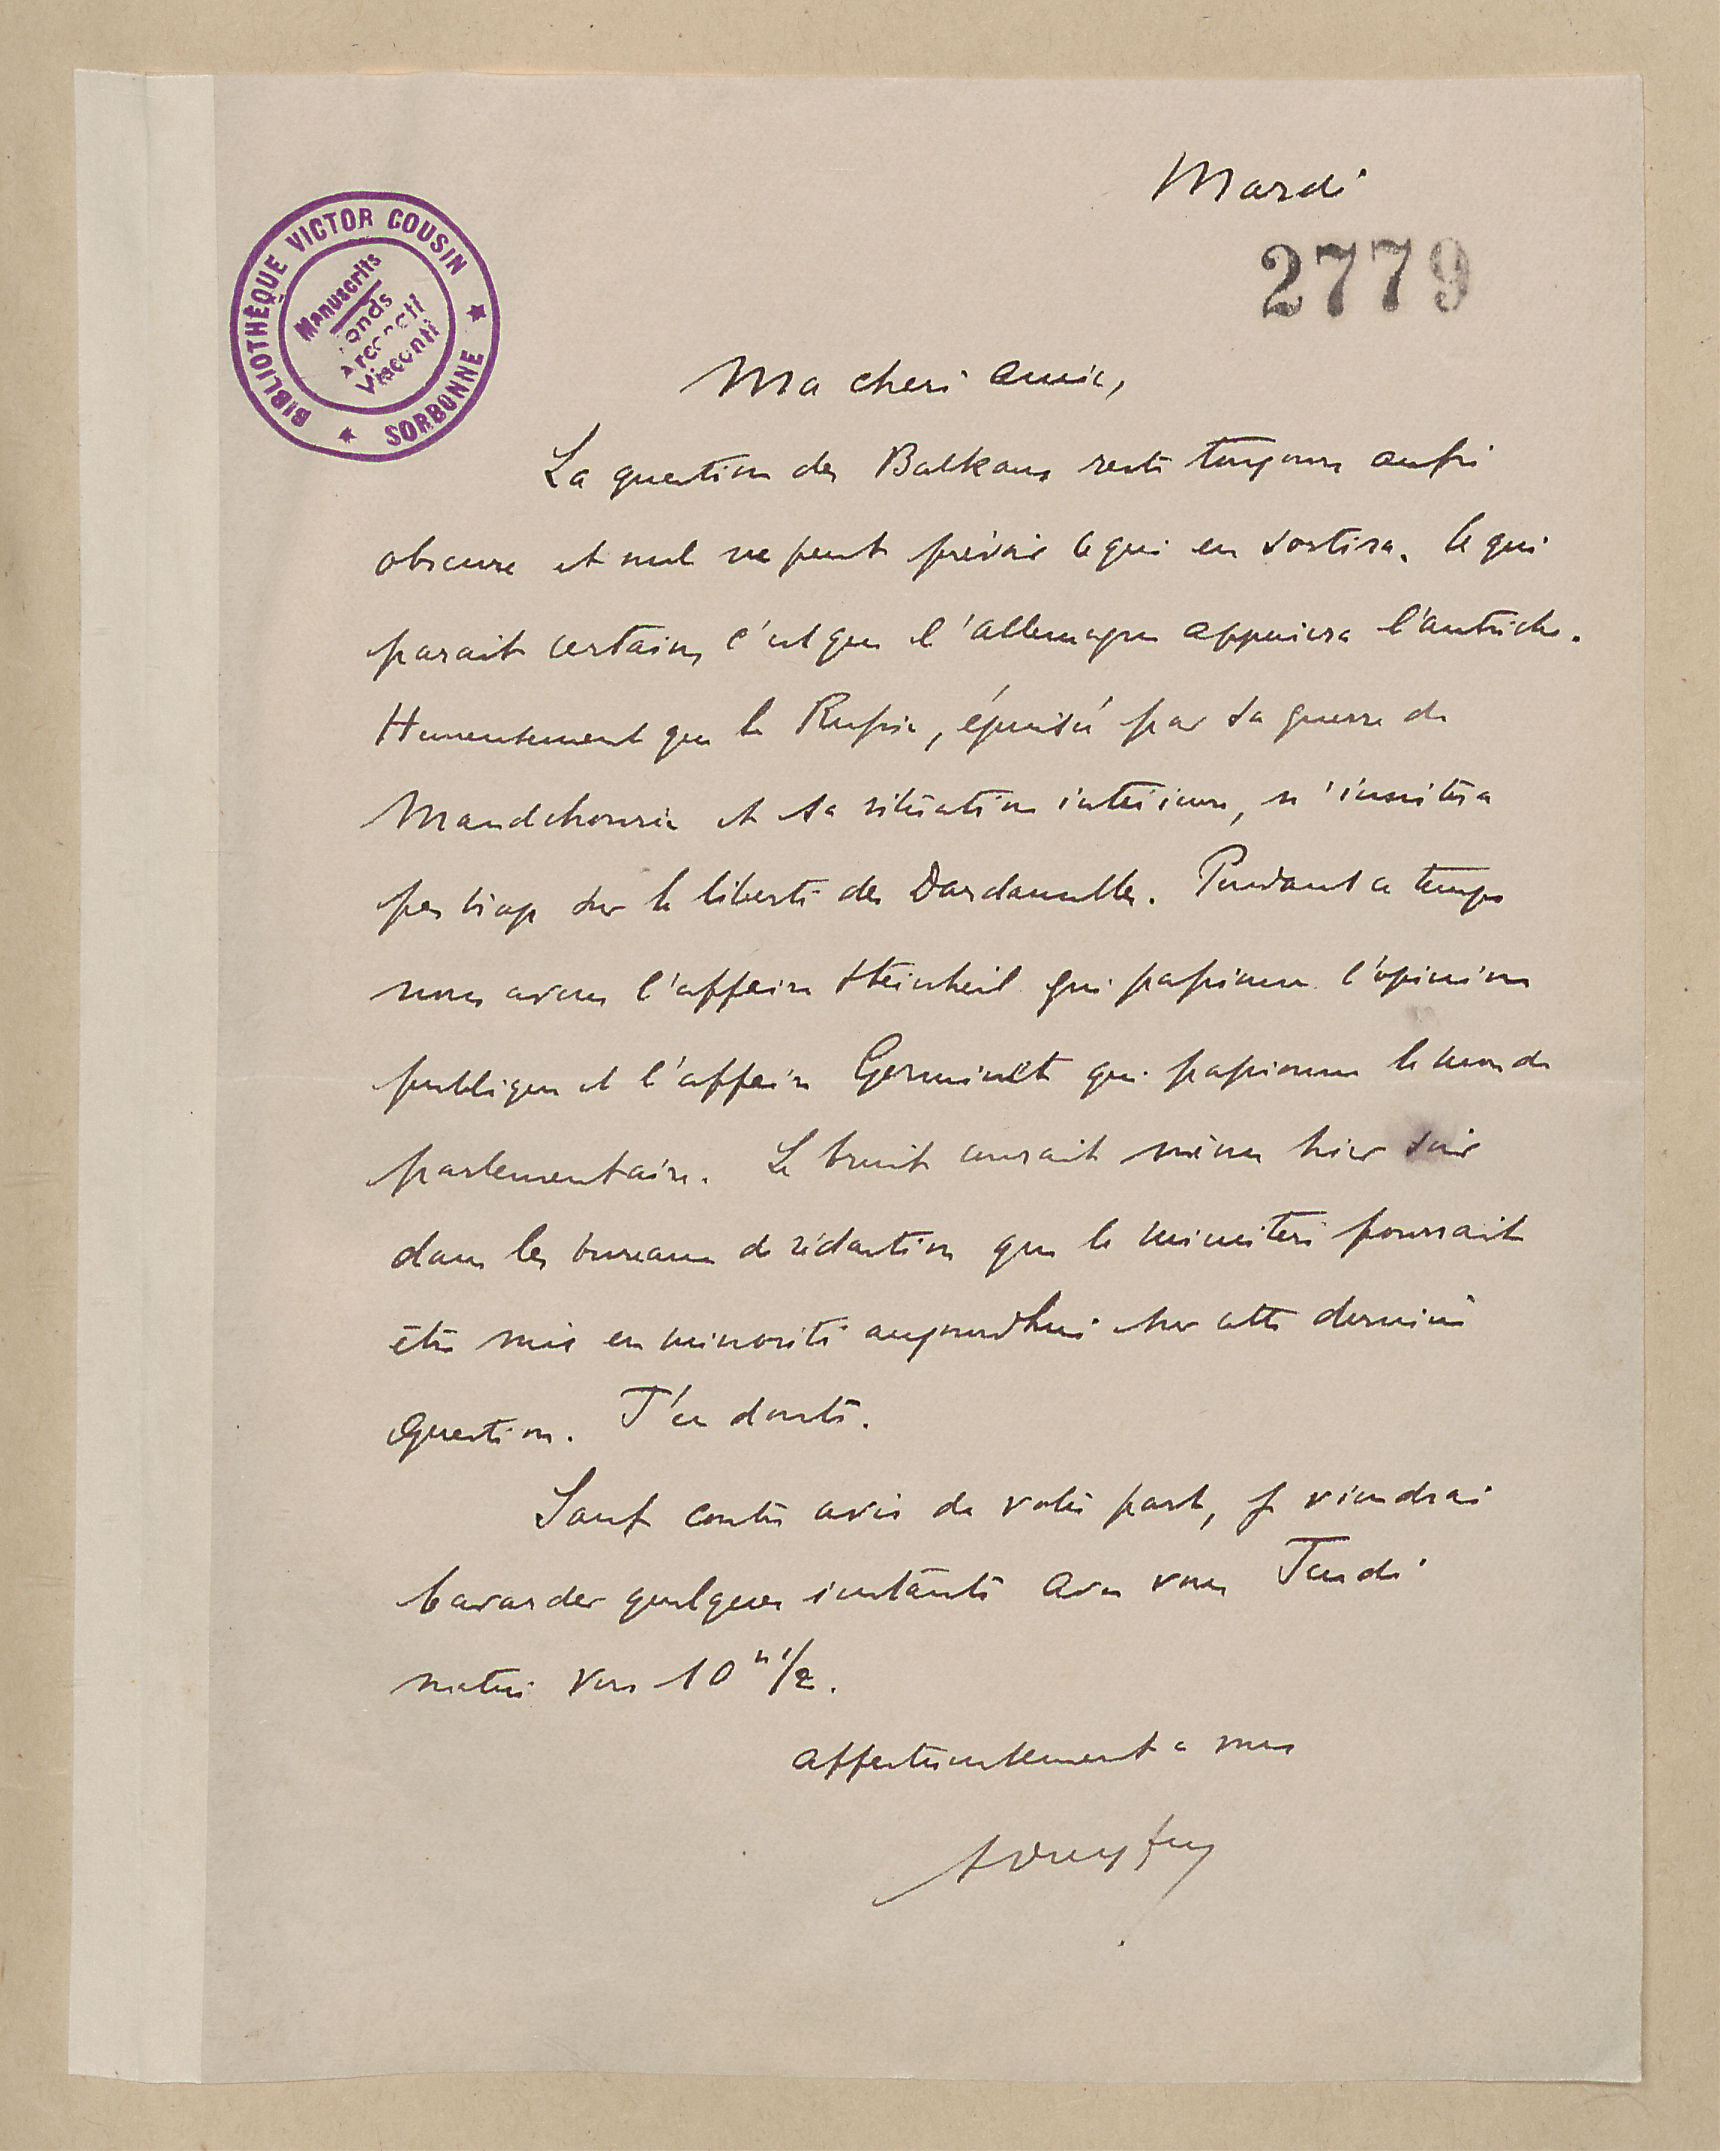 Mardi
2779
BIBLIOTHÈQUE VICTOR COUSIN ★ SORBONNE ★
Manuscrits
fonds
Arconati
Visconti
Ma chère amie,
La question des Balkans reste toujours aussi
obscure et nul ne peut prévoir ce qui en sortira. Ce qui
parait certain, c'est que l'Allemagne appuiera l'Autriche.
Heureusement que la Russie, épuisée par sa guerre de
Mandchourie et sa situation intérieure, n'insistera
pas trop sur la liberté des Dardanelles. Pendant ce temps
nous avons l'affaire Steinheil qui passionne l'opinion
publique et l'affaire Germinet qui passionne le monde
parlementaire. Le bruit courait même hier soir
dans les bureaux de rédaction que le ministère pourrait
être mis en minorité aujourdhui sur cette dernière
question. J'en doute.
Sauf contre avis de votre part, je viendrai
bavarder quelques instants avec vous Jeudi
matin vers 10 h 1/2.
affectueusement à vous
ADreyfus